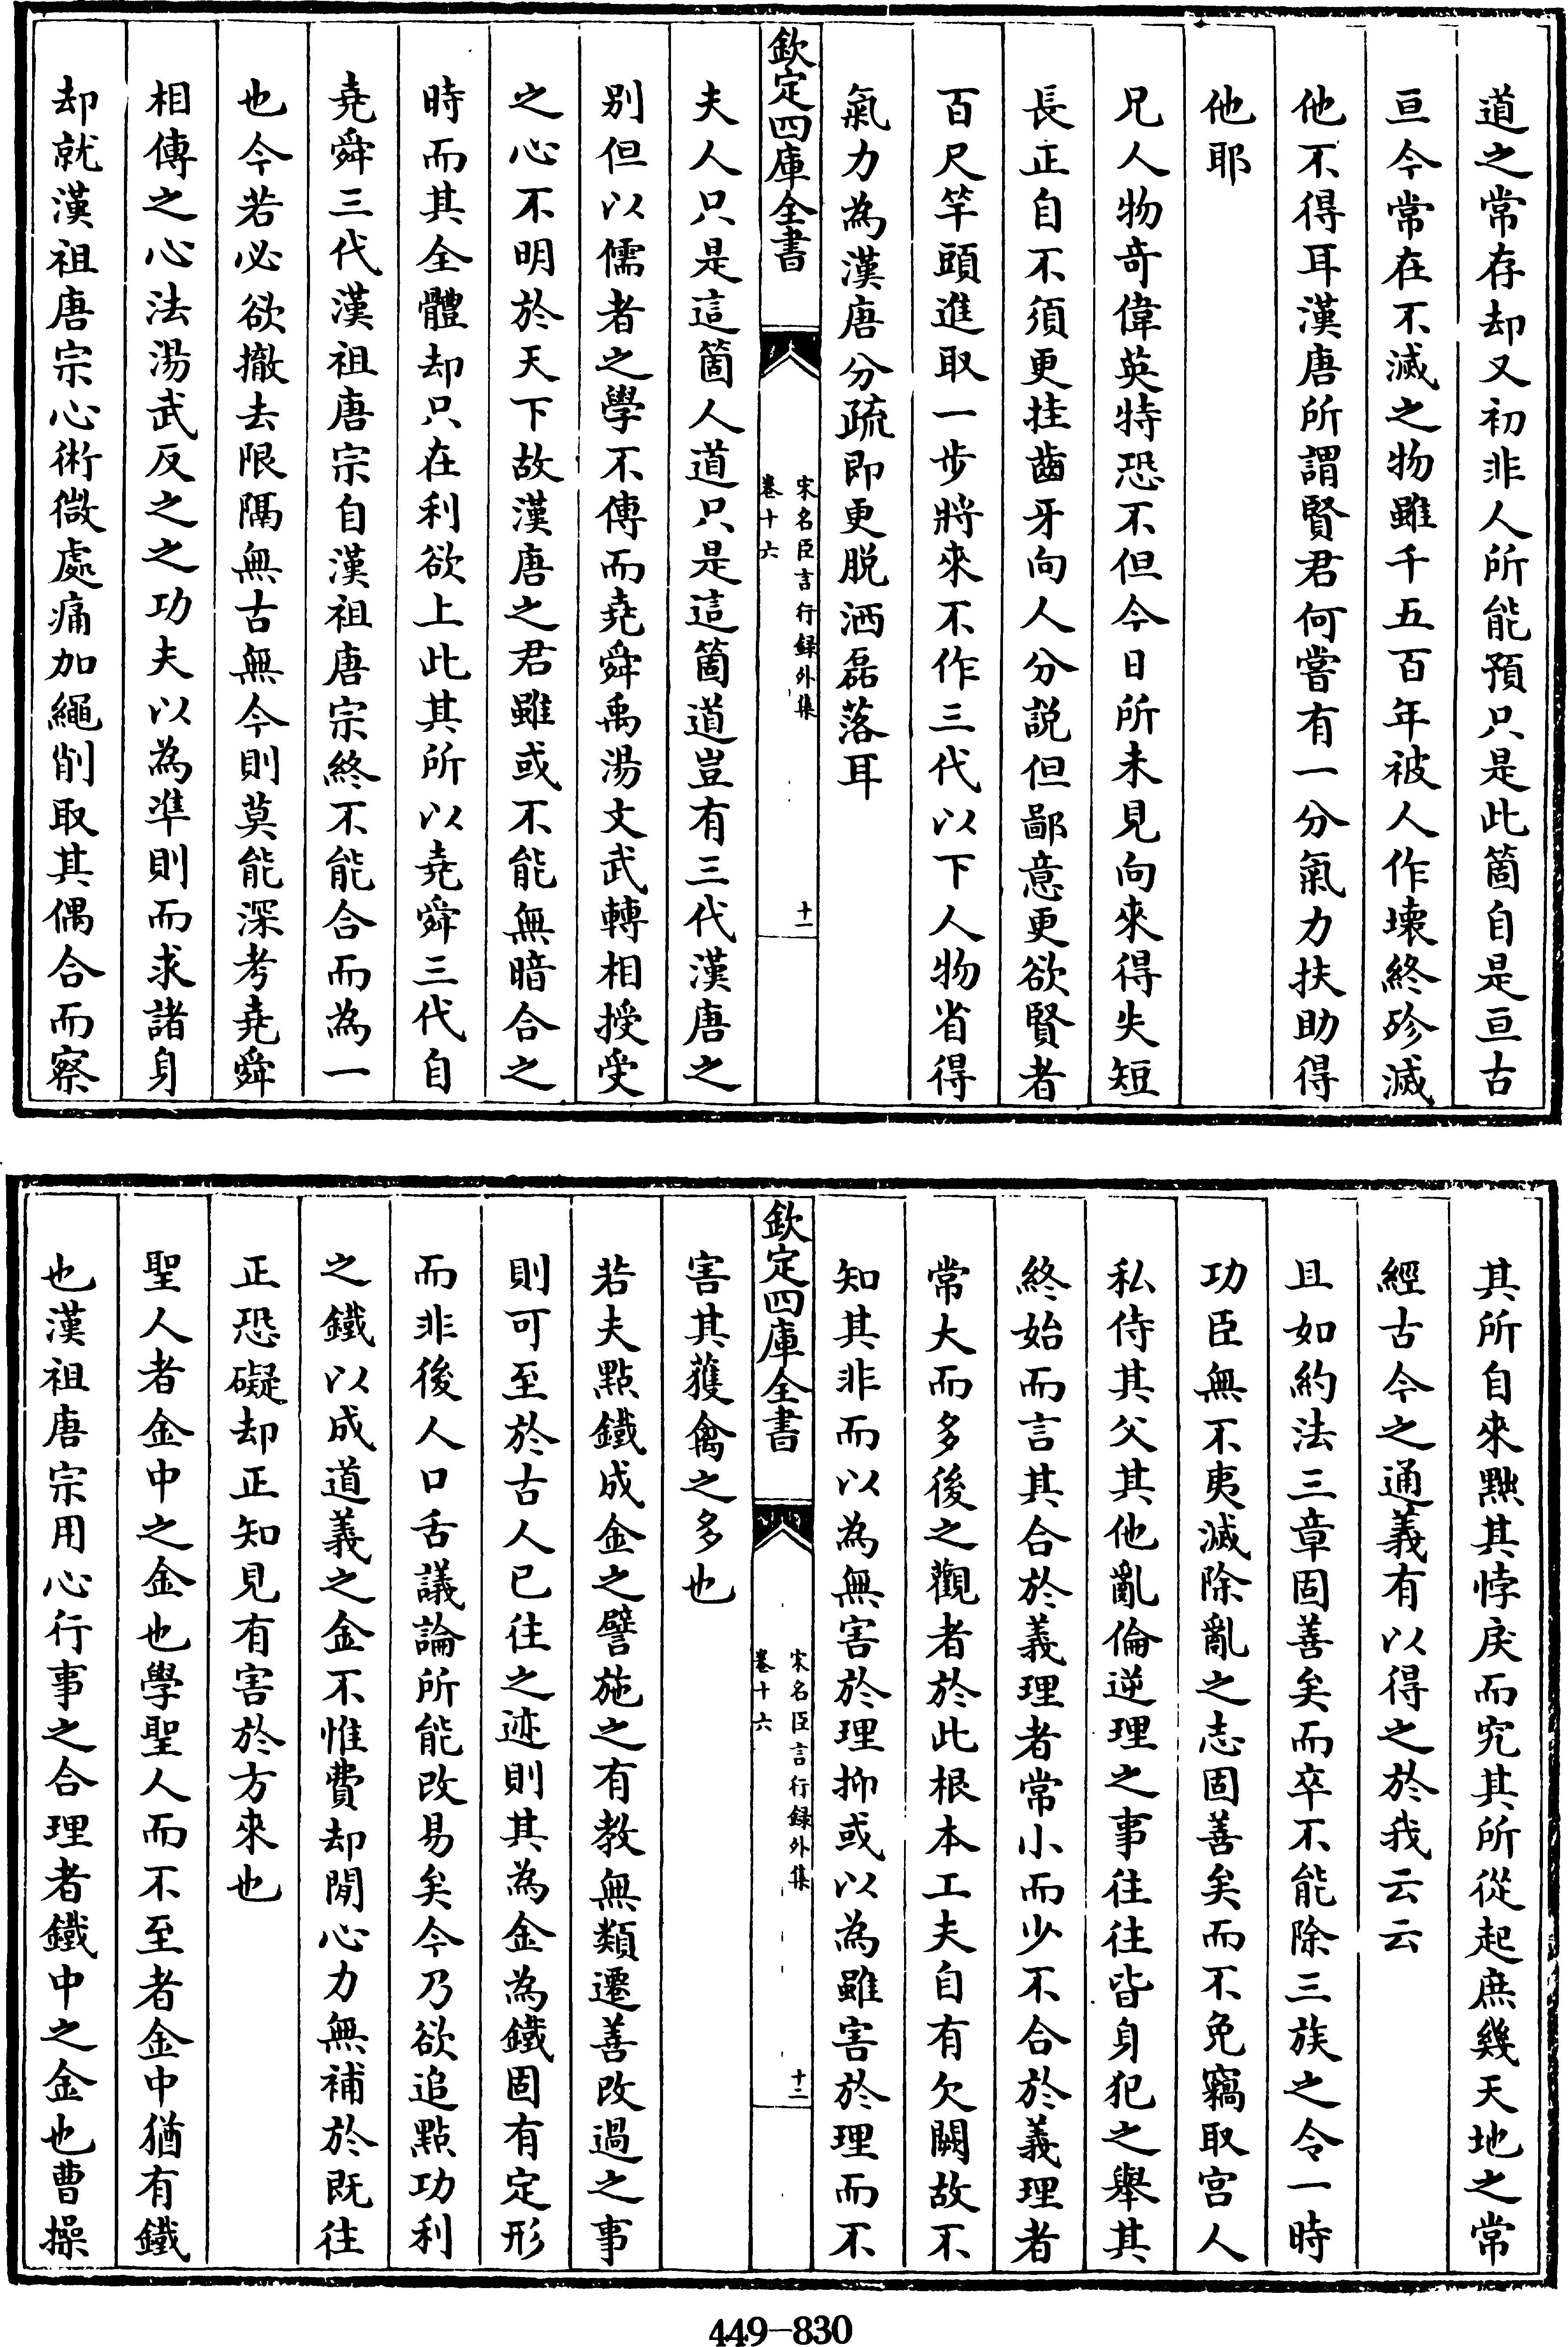 道之常存却又初非人所能預只是此箇自是亘古
亘今常在不滅之物雖千五百年被人作壊終殄滅
他不得耳漢唐所謂賢君何嘗有一分氣力扶助得
他耶
兄人物奇偉英特恐不但今日所未見向來得失短
長正自不須更挂齒牙向人分説但鄙意更欲賢者
百尺竿頭進取一步將來不作三代以下人物省得
氣力為漢唐分疏即更脱洒磊落耳
欽定四庫全書
宋名臣言行録外集
卷十六
十一
夫人只是這箇人道只是這箇道豈有三代漢唐之
别但以儒者之學不傳而堯舜禹湯文武轉相授受
之心不明於天下故漢唐之君雖或不能無暗合之
時而其全體却只在利欲上此其所以堯舜三代自
堯舜三代漢祖唐宗自漢祖唐宗終不能合而為一
也今若必欲撤去限隔無古無今則莫能深考堯舜
相傳之心法湯武反之之功夫以為凖則而求諸身
却就漢祖唐宗心術微處痛加繩削取其偶合而察
其所自來黜其悖戾而究其所從起庶幾天地之常
經古今之通義有以得之於我云云
且如約法三章固善矣而卒不能除三族之令一時
功臣無不夷滅除亂之志固善矣而不免竊取宫人
私侍其父其他亂倫逆理之事往往皆身犯之舉其
終始而言其合於義理者常小而少不合於義理者
常大而多後之觀者於此根本工夫自有欠闕故不
知其非而以為無害於理抑或以為雖害於理而不
欽定四庫全書
宋名臣言行録外集
卷十六
十二
害其獲禽之多也
若夫點鐵成金之譬施之有教無類遷善改過之事
則可至於古人已往之迹則其為金為鐵固有定形
而非後人口舌議論所能改易矣今乃欲追點功利
之鐵以成道義之金不惟費却閒心力無補於既往
正恐礙却正知見有害於方來也
聖人者金中之金也學聖人而不至者金中猶有鐵
也漢祖唐宗用心行事之合理者鐵中之金也曹操
449-830